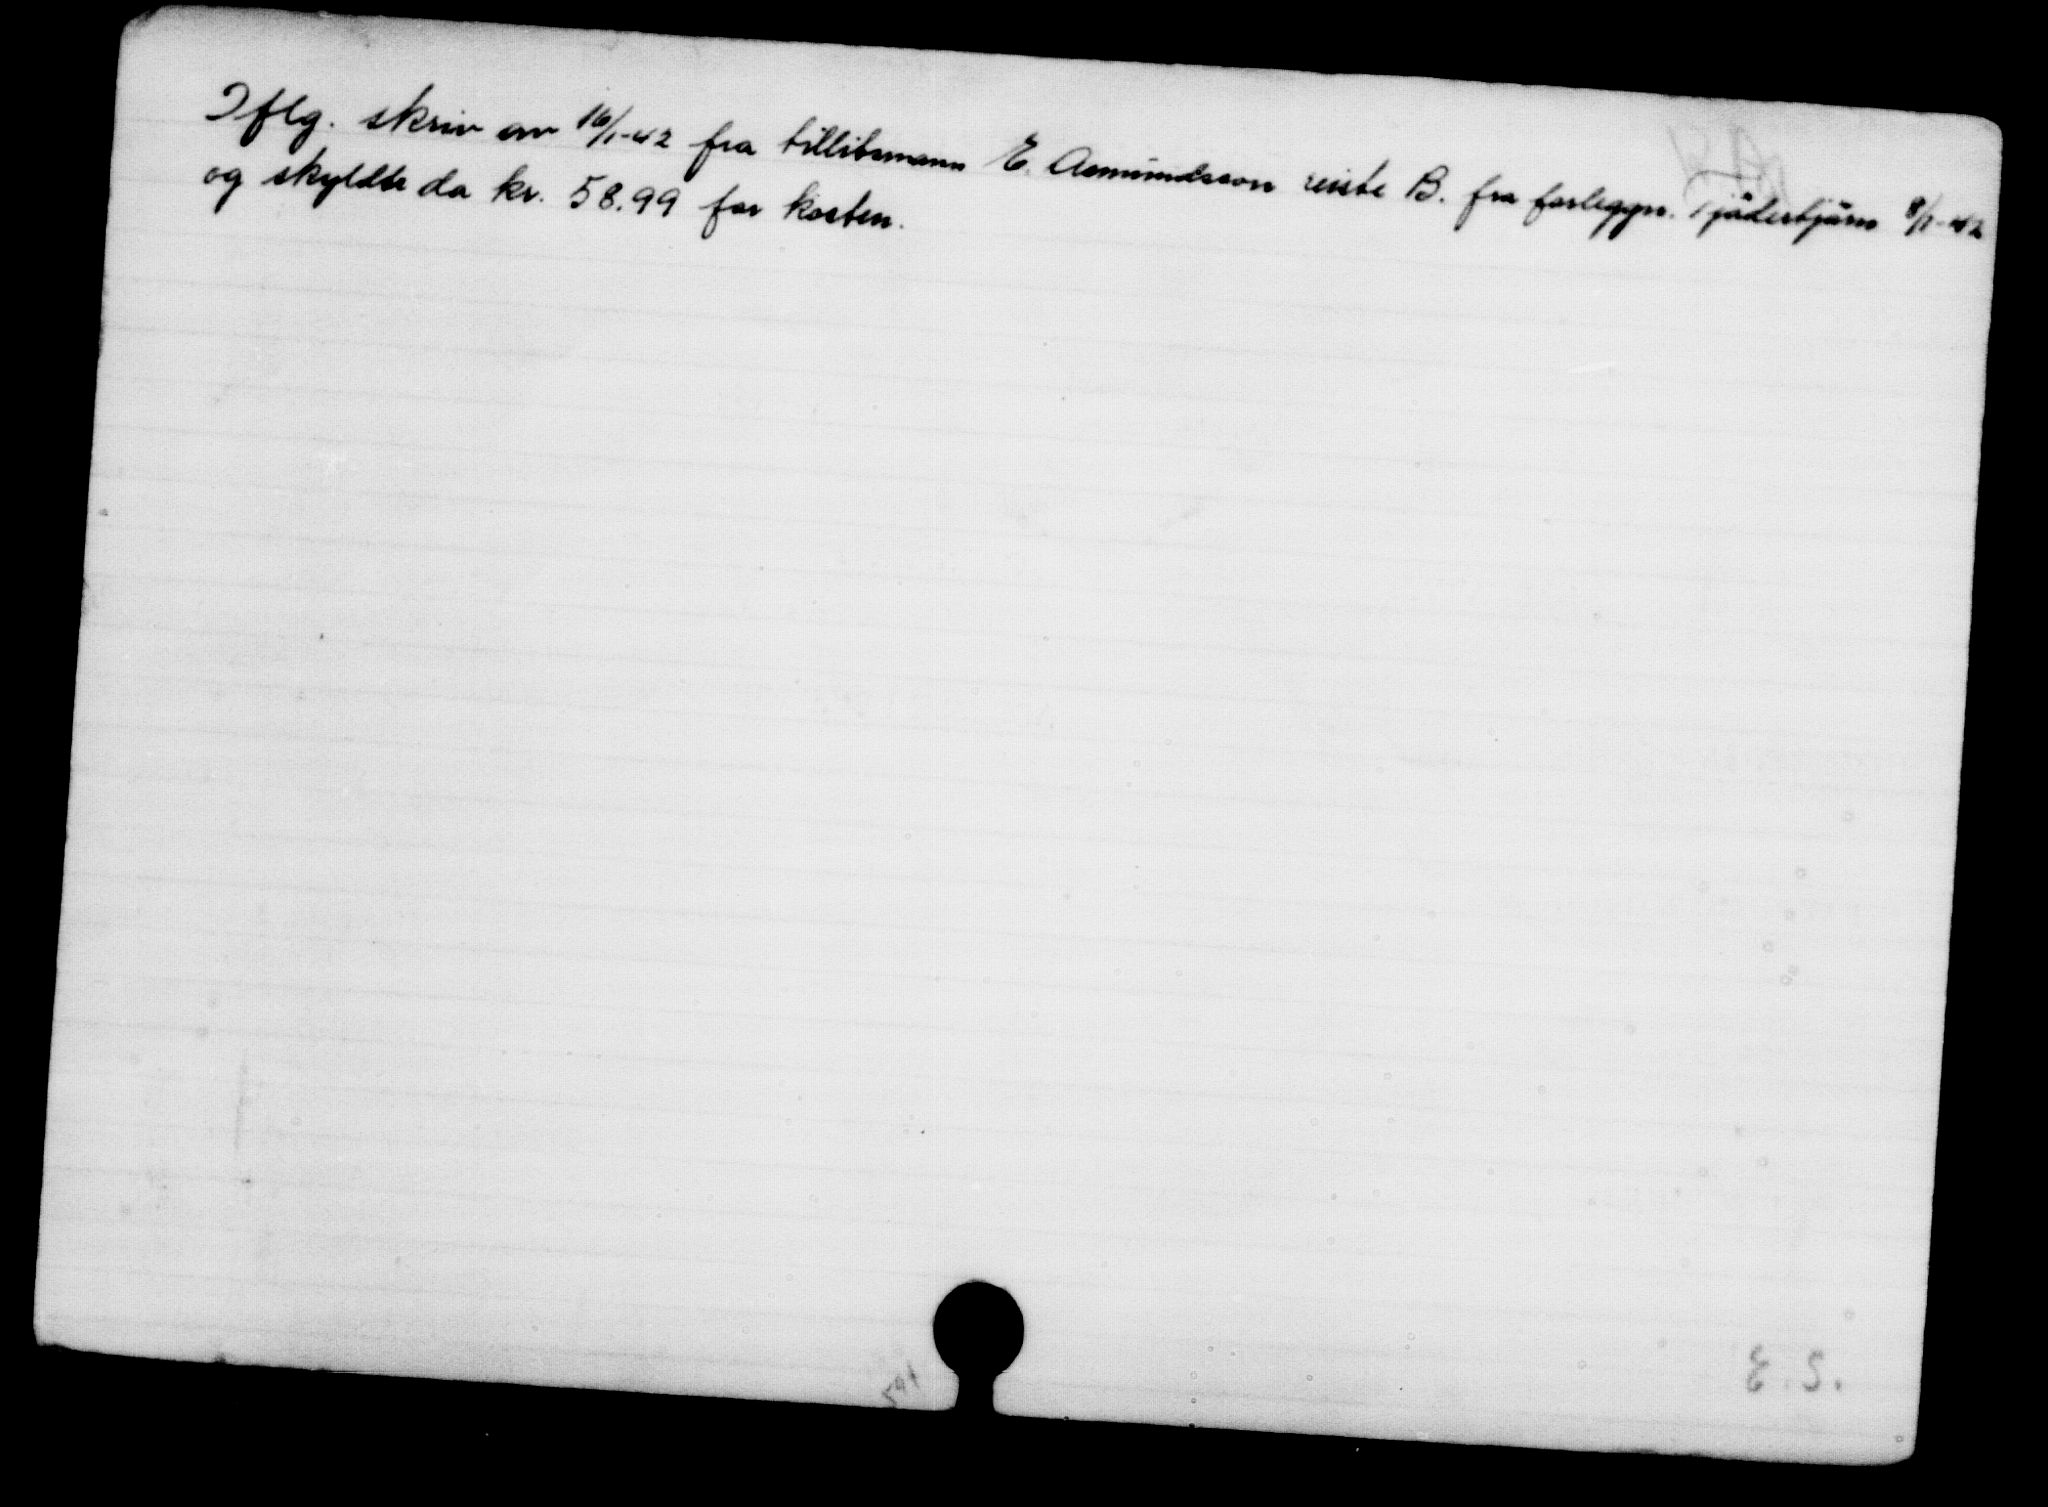 Iflg. skriv av 16/1-42 fra tillitsmann E. Asmundsson reiste B. fra forleggn. Tjäderbjärn 8/1-42
og skyldte da kr. 58.99 for kosten.
E. S.